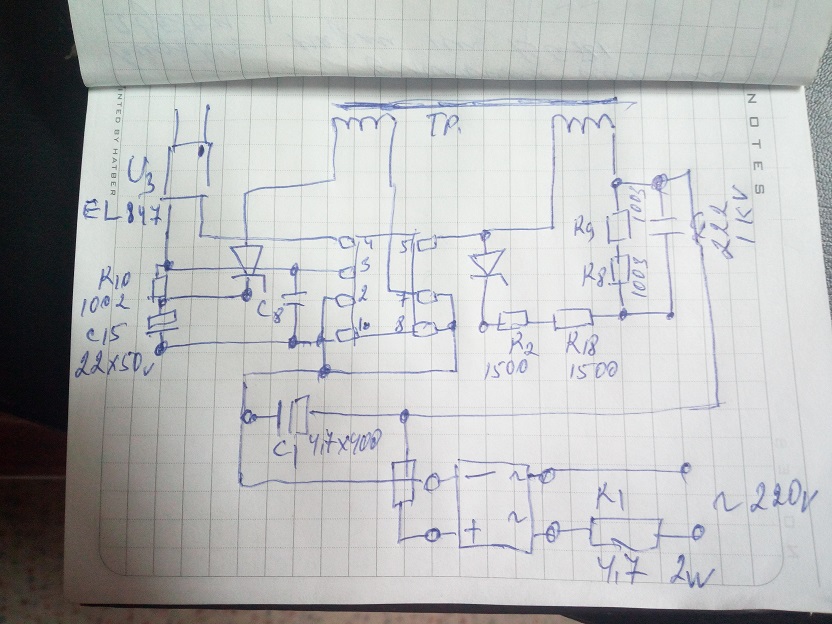 NOTES
PRINTED BY HATBER
Tр.
U3
EL 847
R10
1002
C15
22x50v
C8
4
3
2
10
5
7
8
R9
1003
R8
1003
222
1KV
R2
1500
R18
1500
C1 4,7x400
−
+
~
~
R1
4,7 2w
~220v